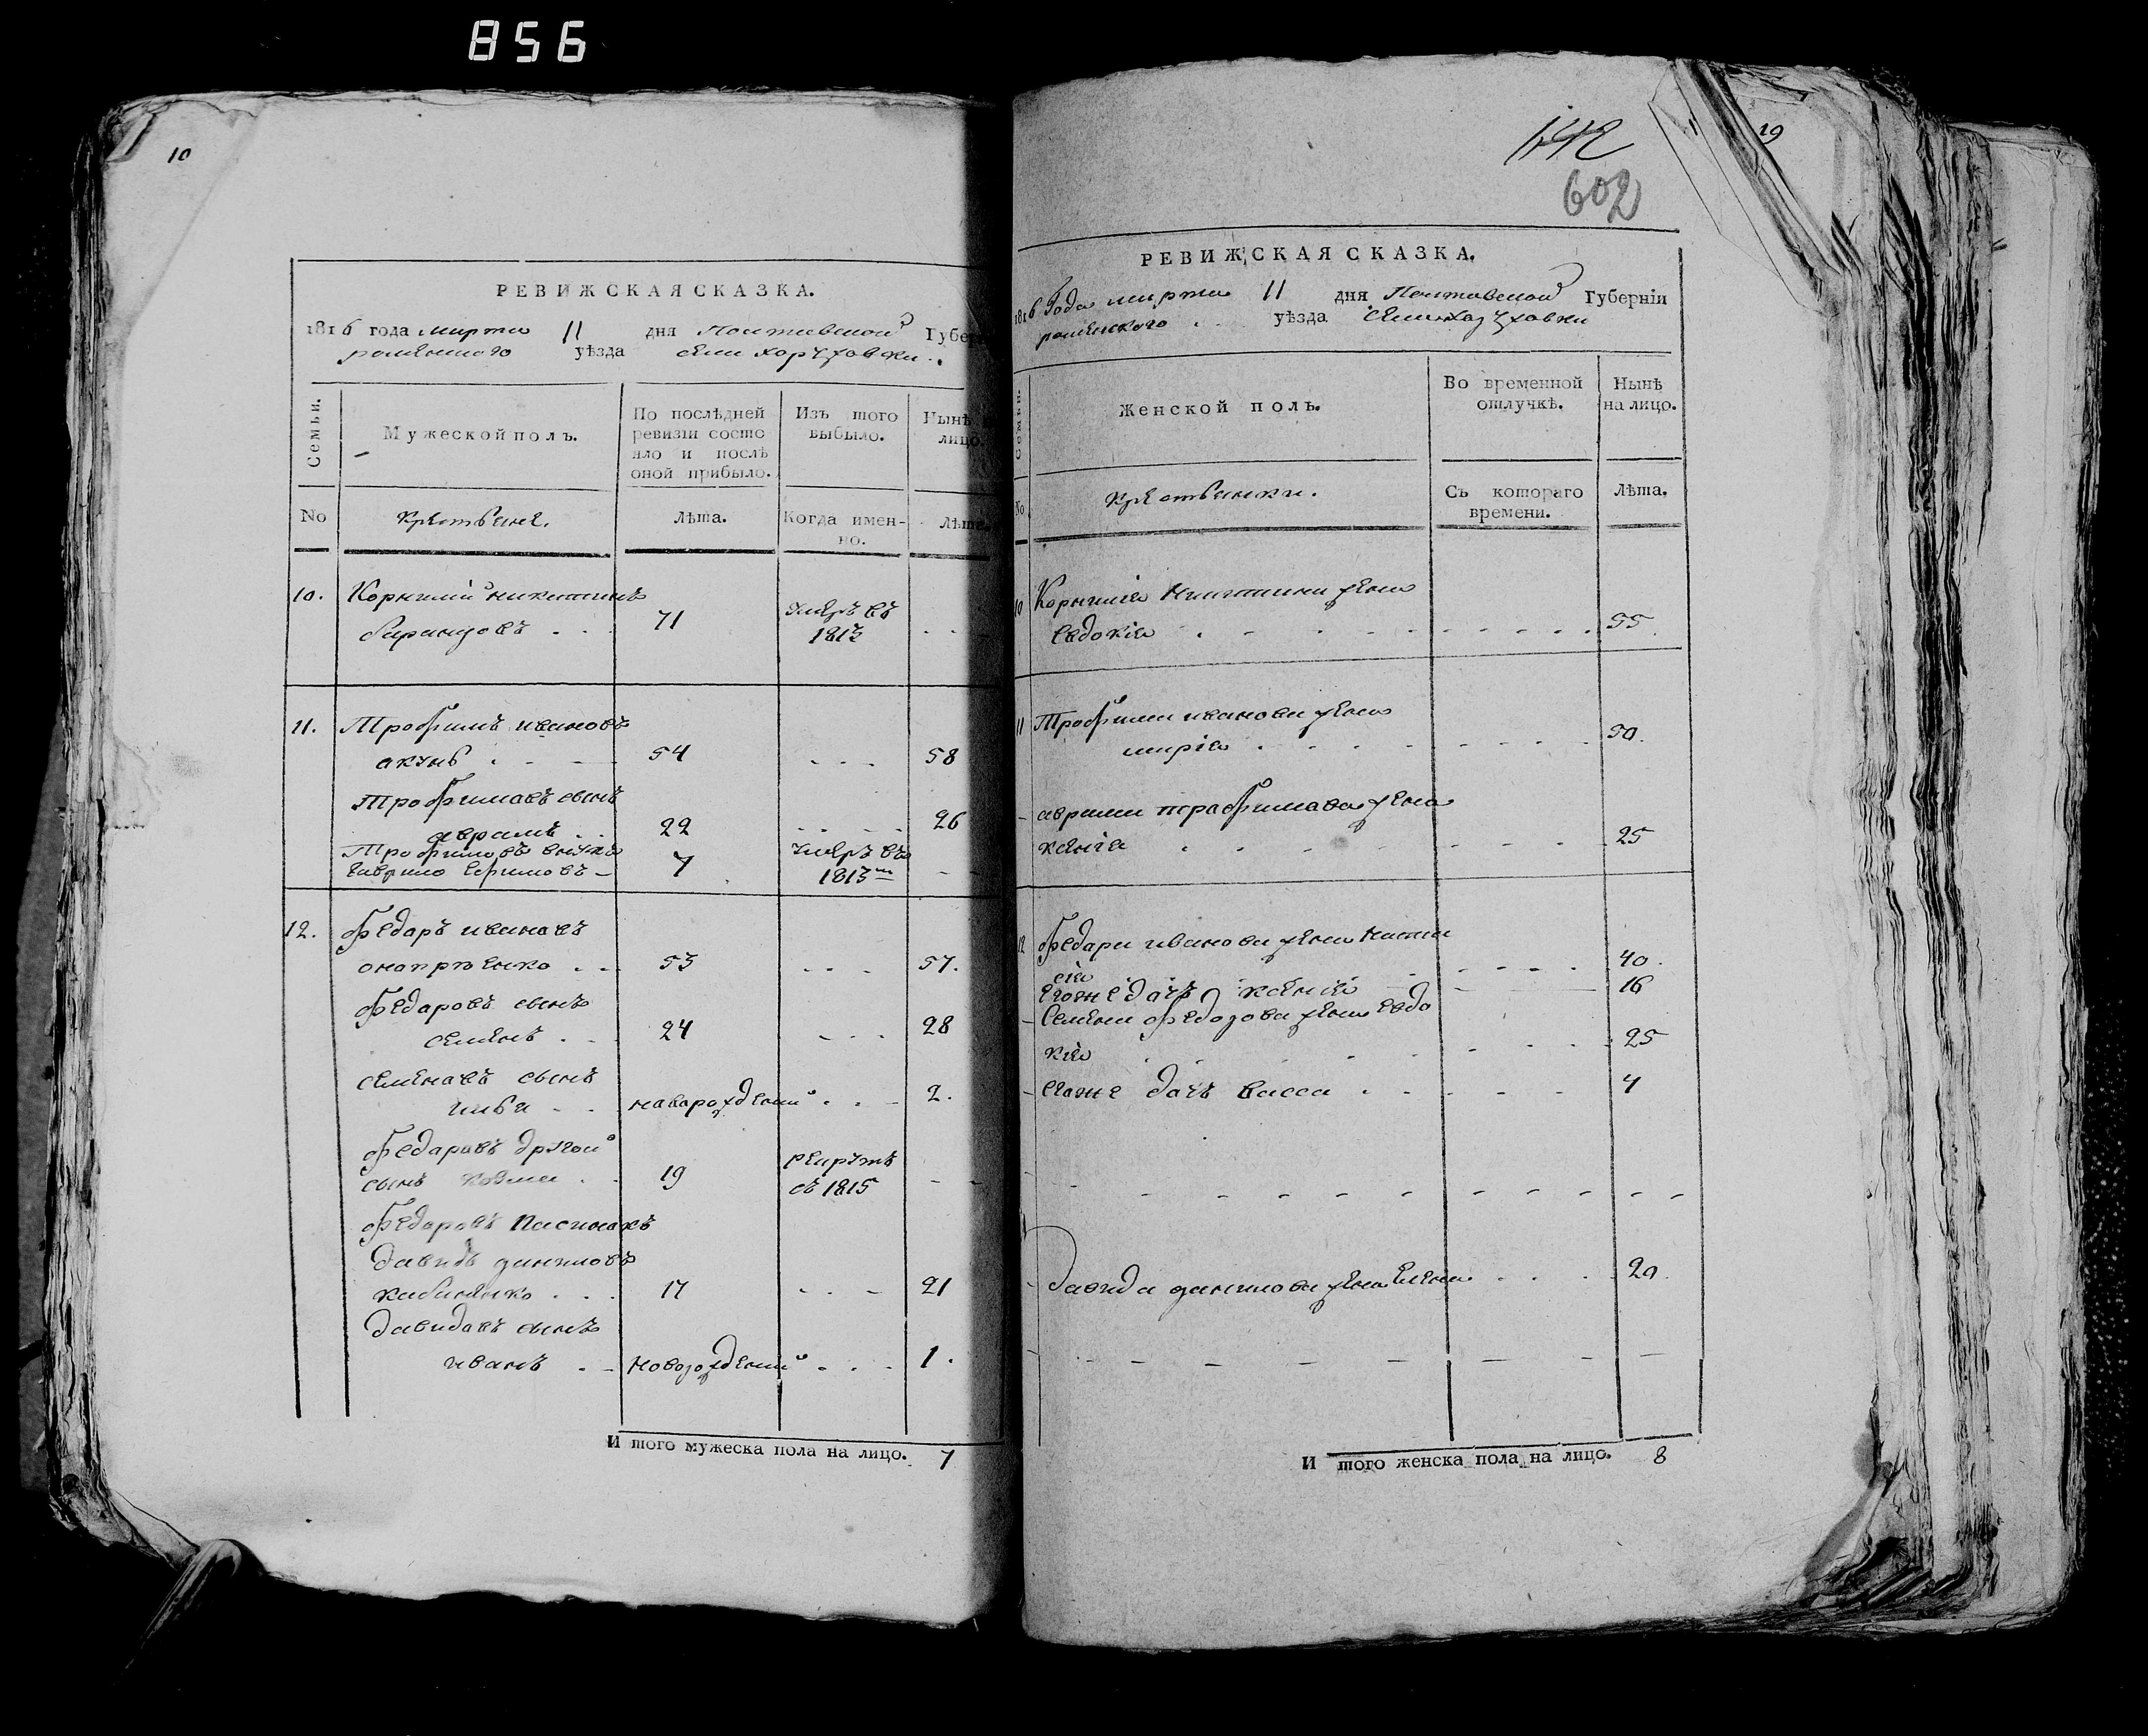 856
10
РЕВИЖСКАЯ СКАЗКА.
1816 года марта 11 дня Полтавской Губер
роменского уѣзда села хоружовки.
Семьи.
Мужеской полъ.
По послѣдней ревизіи состо
яло и послѣ
оной прибыло.
Изъ того выбыло.
Нынѣ лицо.
No
крестьяне.
Лѣта.
Когда имен-
но.
Лѣта.
10. Корнилій никитинъ
71 умеръ въ 1813
11. Трофимъ ивановъ
54 58
Трофимавъ сынъ
аврамъ 22 26
Трофимовъ внукъ
Гаврило Ефимовъ 7 умеръ въ 1813
12. федаръ иванавъ
онапрѣенко 53 57.
федаровъ сынъ
семенъ 24 28
семенавъ сынъ
новарожденный 2.
федаравъ другой
сынъ козма 19 рекрутъ
въ 1815
федаровъ пасинакъ
давидъ даниловъ
17 21
давидавъ сынъ
иванъ новорожденный 1.
И того мужеска пола на лицо. 7
142
602
19
РЕВИЖСКАЯ СКАЗКА.
1816 года марта 11 дня Полтавской Губерніи
роменского уѣзда села хоружовки
Семьи.
Женской полъ.
Во временной
отлучкѣ.
Нынѣ
на лицо.
No
крестьянки.
Съ котораго
времени.
Лѣта.
10 Корнилія Никитина жена
Евдокія 55
11 Трофима иванова жена
марія 50.
аврама трафимава жена
ксенія 25
12 федара иванова жена Наста
сія 40.
Егоже дачь ксенія 16
Семена федорова жена Евдо
кія 25
Егоже дачь васса 4
давида данилова жена Елена 20.
И того женска пола на лицо. 8